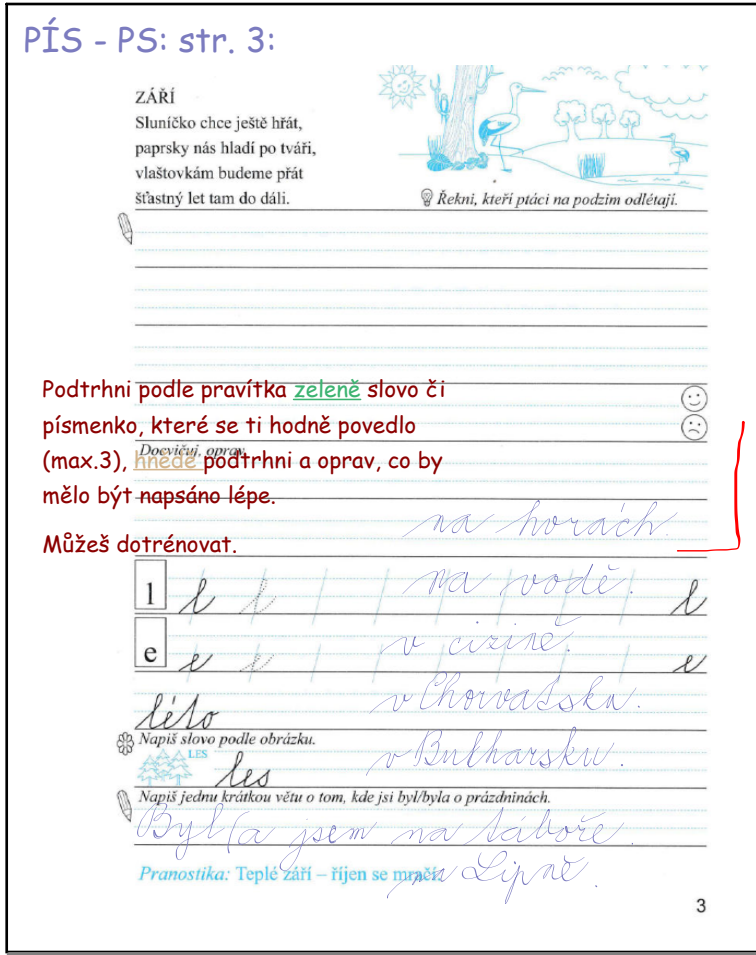 PÍS - PS: str. 3:
ZÁŘÍ
Sluníčko chce ještě hřát,
paprsky nás hladí po tváři,
vlaštovkám budeme přát
šťastný let tam do dáli.
Řekni, kteří ptáci na podzim odlétají.
Podtrhni podle pravítka zeleně slovo či
písmenko, které se ti hodně povedlo
Docvičuj, oprav.
(max.3), hnědě podtrhni a oprav, co by
mělo být napsáno lépe.
na horách.
Můžeš dotrénovat.
l l l na vodě. l
e e e v cizině. e
léto v Chorvatsku.
Napiš slovo podle obrázku.
LES les v Bulharsku.
Napiš jednu krátkou větu o tom, kde jsi byl/byla o prázdninách.
Byl(a jsem na táboře.
Pranostika: Teplé září – říjen se mračí.
na Lipně.
3